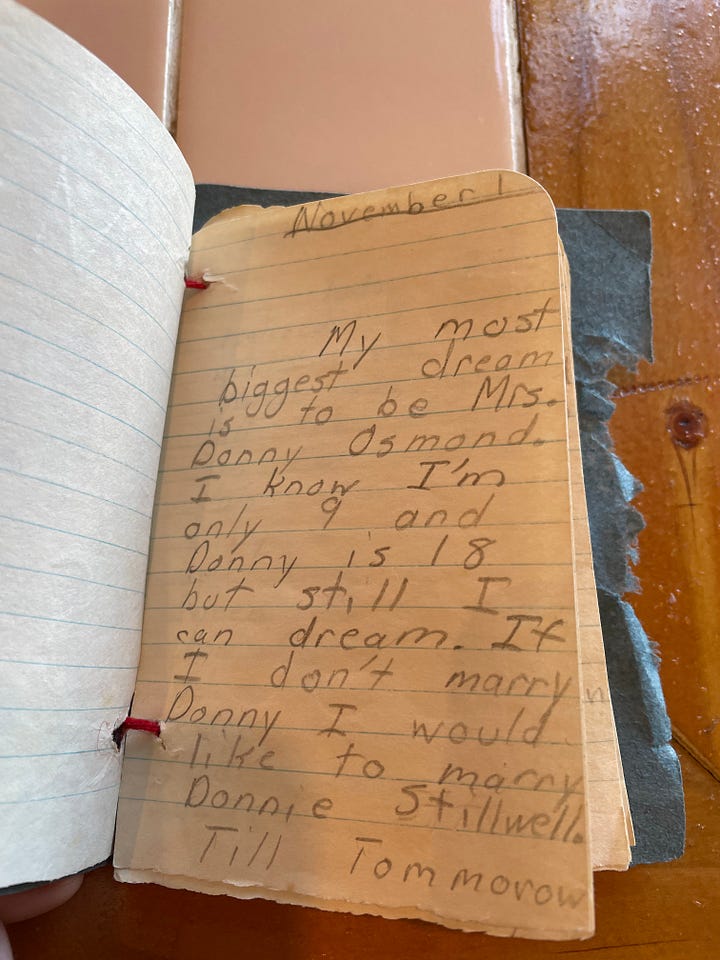 November 1
My most
biggest dream
is to be Mrs.
Donny Osmond.
I know I'm
only 9 and
Donny is 18
but still I
can dream. If
I don't marry
Donny I would
like to marry
Donnie Stillwell.
Till Tommorow